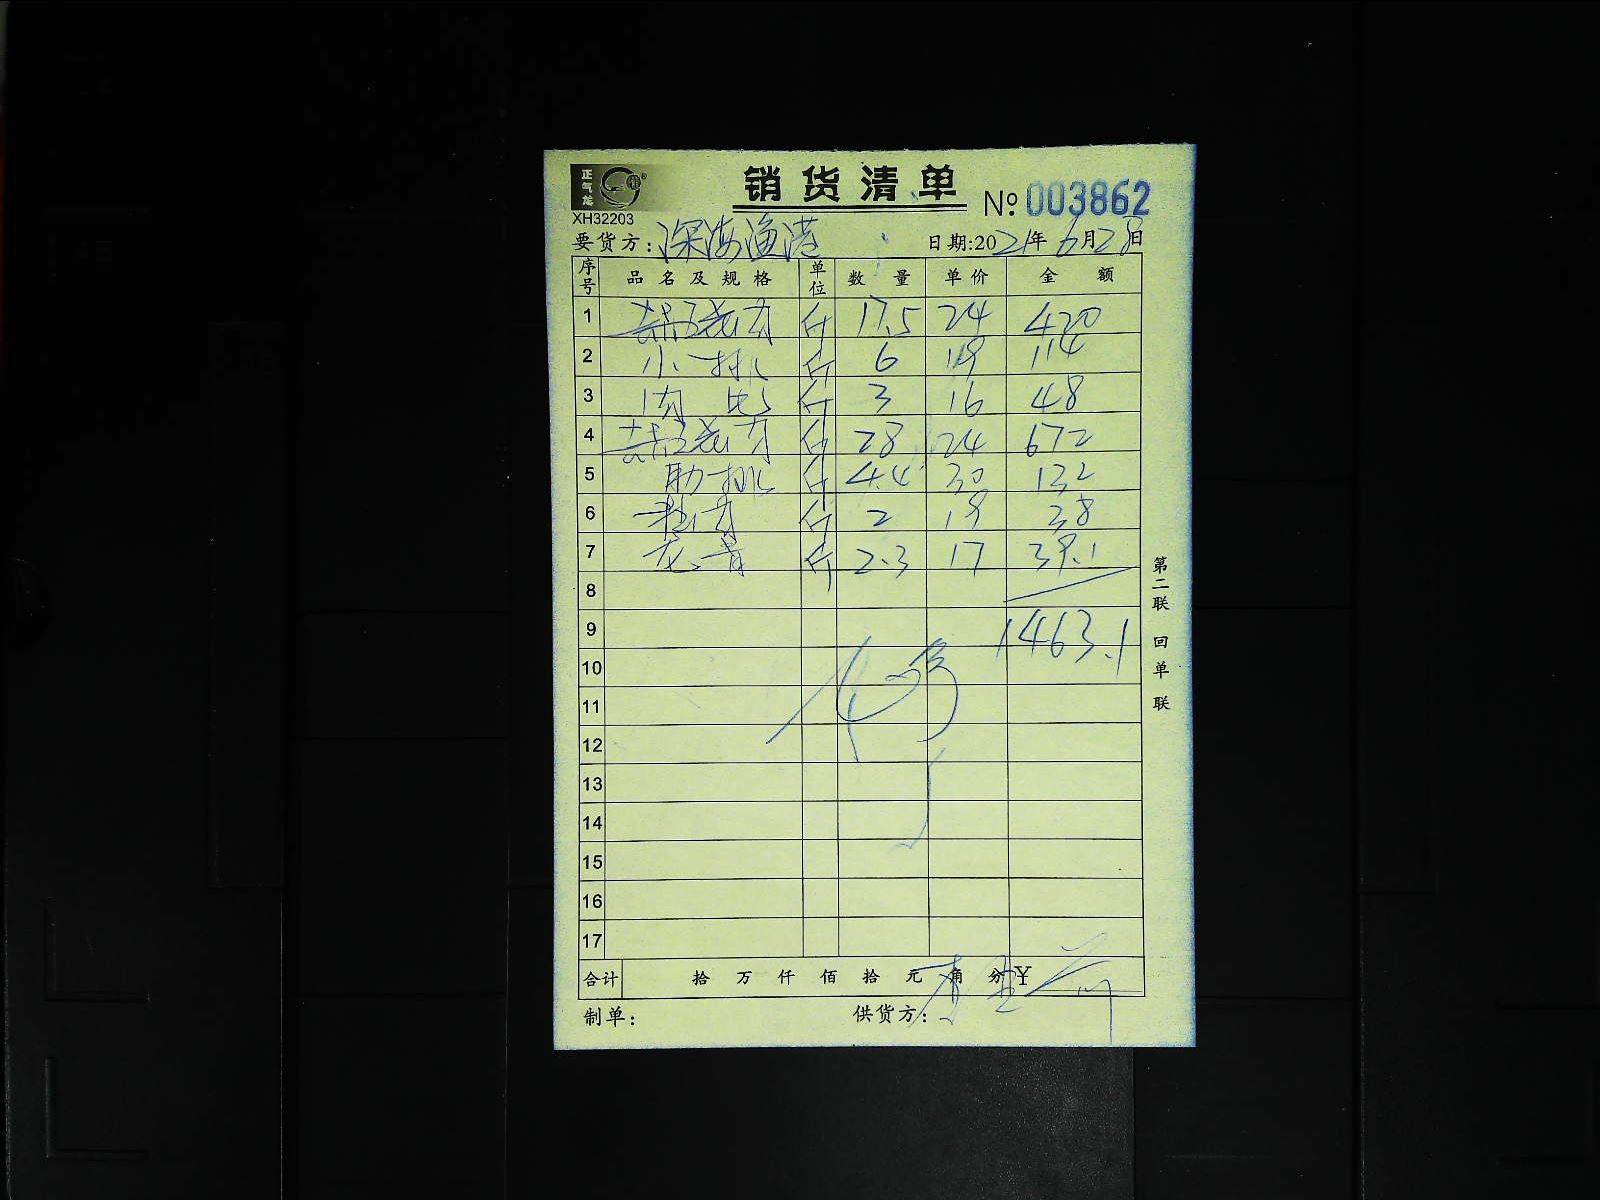 正气龙
XH32203
销货清单
№ 003862
要货方: 深海渔港 日期:2021年6月28日
序号 品名及规格 单位 数量 单价 金额
1 斤 17.5 24 420
2 小排 斤 6 19 114
3 肉 斤 3 16 48
4 斤 28 24 672
5 肋排 斤 4.4 30 132
6 斤 2 19 38
7 龙骨 斤 2.3 17 39.1
8
9 1463.1
10
11
12
13
14
15
16
17
合计 拾 万 仟 佰 拾 元 角 分 ¥
制单: 供货方:
第二联 回单联